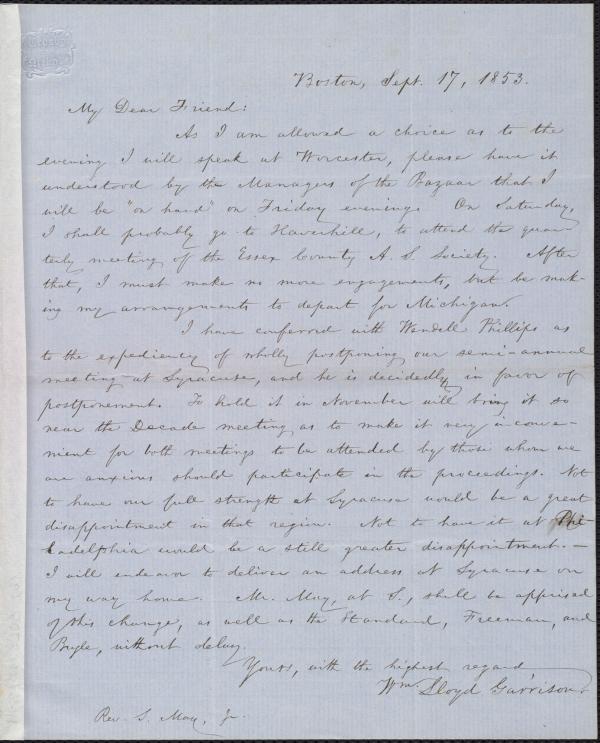 Boston, Sept. 17, 1853.
My Dear Friend:
As I am allowed a choice as to the
evening I will speak at Worcester, please have it
understood by the Managers of the Bazaar that I
will be "on hand" on Friday evening. On Saturday,
I shall probably go to Haverhill, to attend the quar-
terly meeting of the Essex County A. S. Society. After
that, I must make no more engagements, but be mak-
ing my arrangements to depart for Michigan.
I have conferred with Wendell Phillips as
to the expediency of wholly postponing our semi-annual
meeting at Syracuse, and he is decidedly in favor of
postponement. To hold it in November will bring it so
near the Decade meeting as to make it very inconve-
nient for both meetings to be attended by those whom we
are anxious should participate in the proceedings. Not
to have our full strength at Syracuse would be a great
disappointment in that region. Not to have it at Phi-
ladelphia would be a still greater disappointment. —
I will endeavor to deliver an address at Syracuse on
my way home. Mr. May, at S., shall be apprised
of this change, as well as the Standard, Freeman, and
Bugle, without delay.
Yours, with the highest regard
Wm. Lloyd Garrison.
Rev. S. May, Jr.